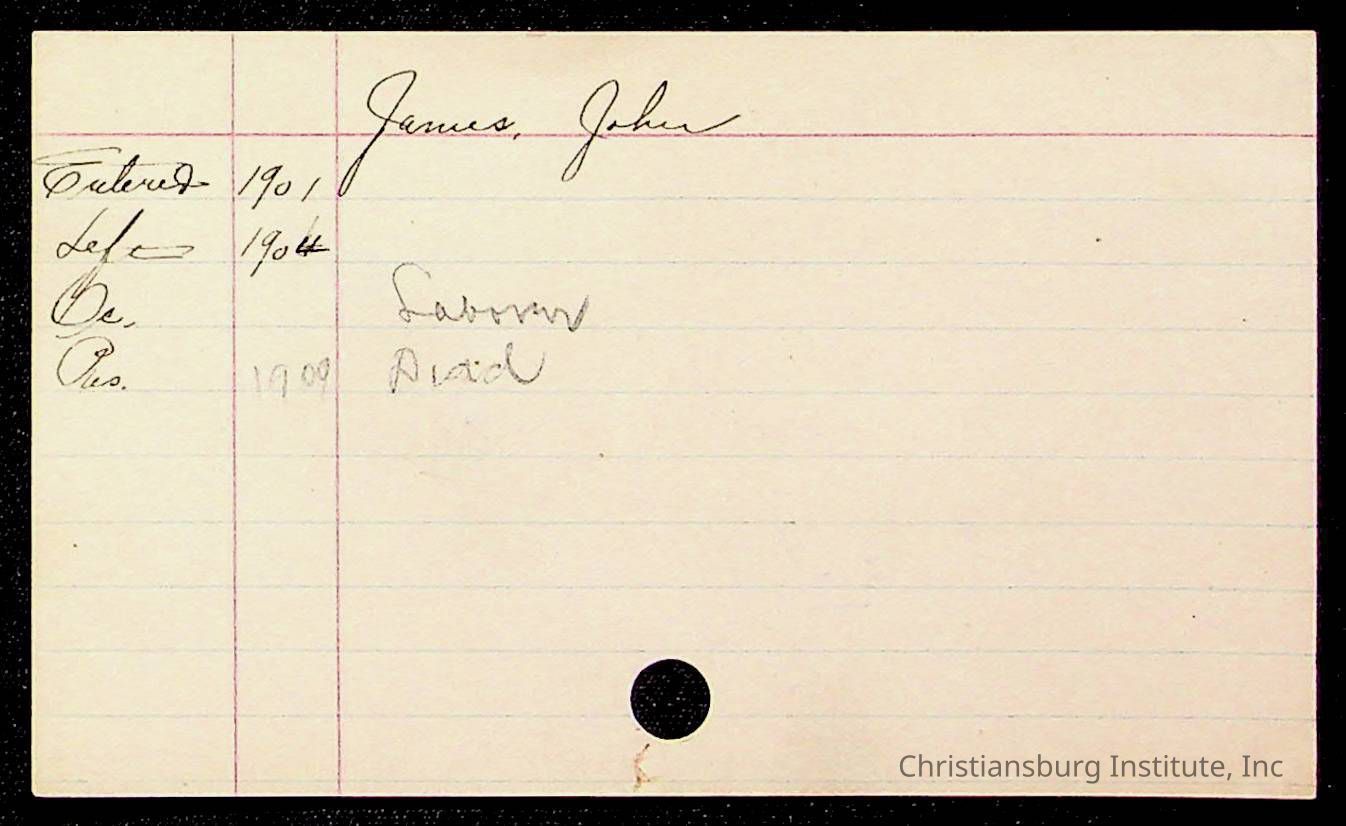 James, John
Entered 1901
Left 1904
Oc. Laborer
Res. 1909 Dead
Christiansburg Institute, Inc